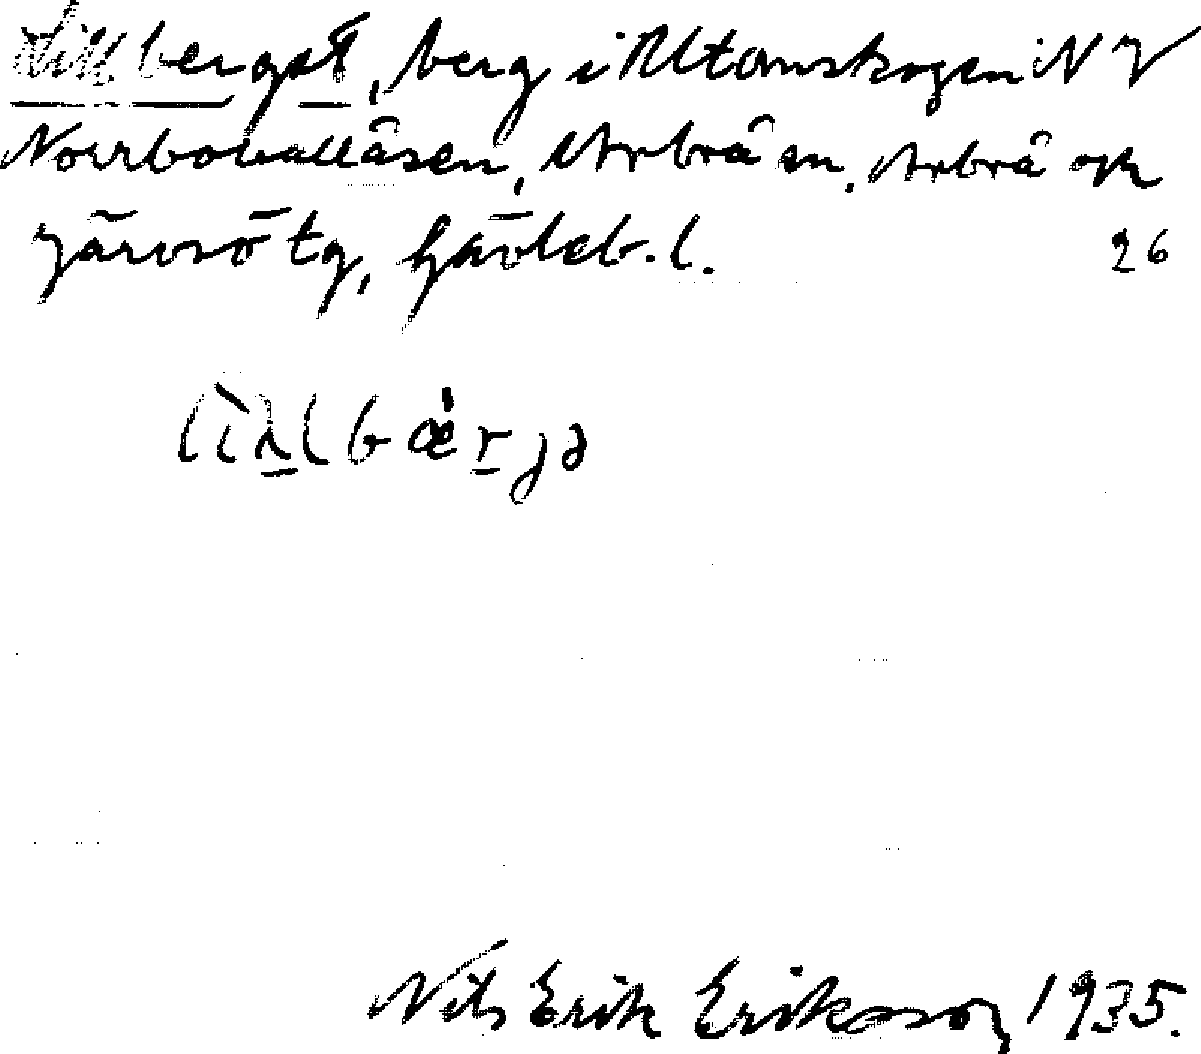 Lillberget, berg i Utanskogen NV
Norrbovallåsen, Arbrå sn, Arbrå och
Järvsö tg, Gävleb. l. 26
Nils Erik Eriksson 1935.